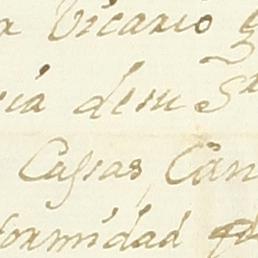 Vicario
ria demi S
Casas Can
formidad